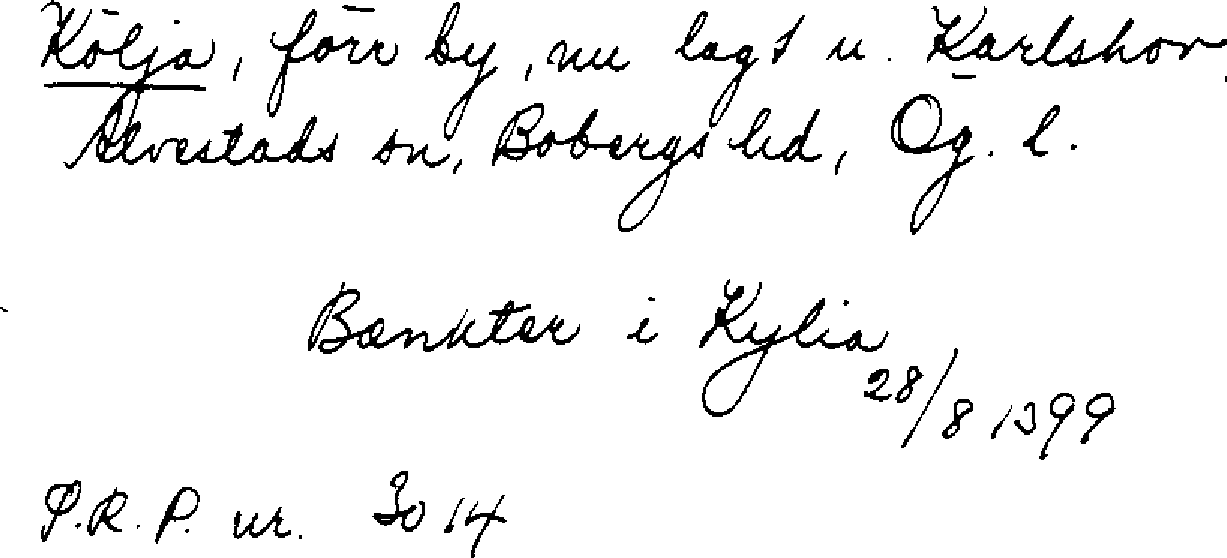 Kölja, förr by, nu lagt u. Karlshov,
Alvestads sn, Bobergs hd, Ög. l.
Bænkter i Kylia
28/8 1399
S.R.P. nr. 3014